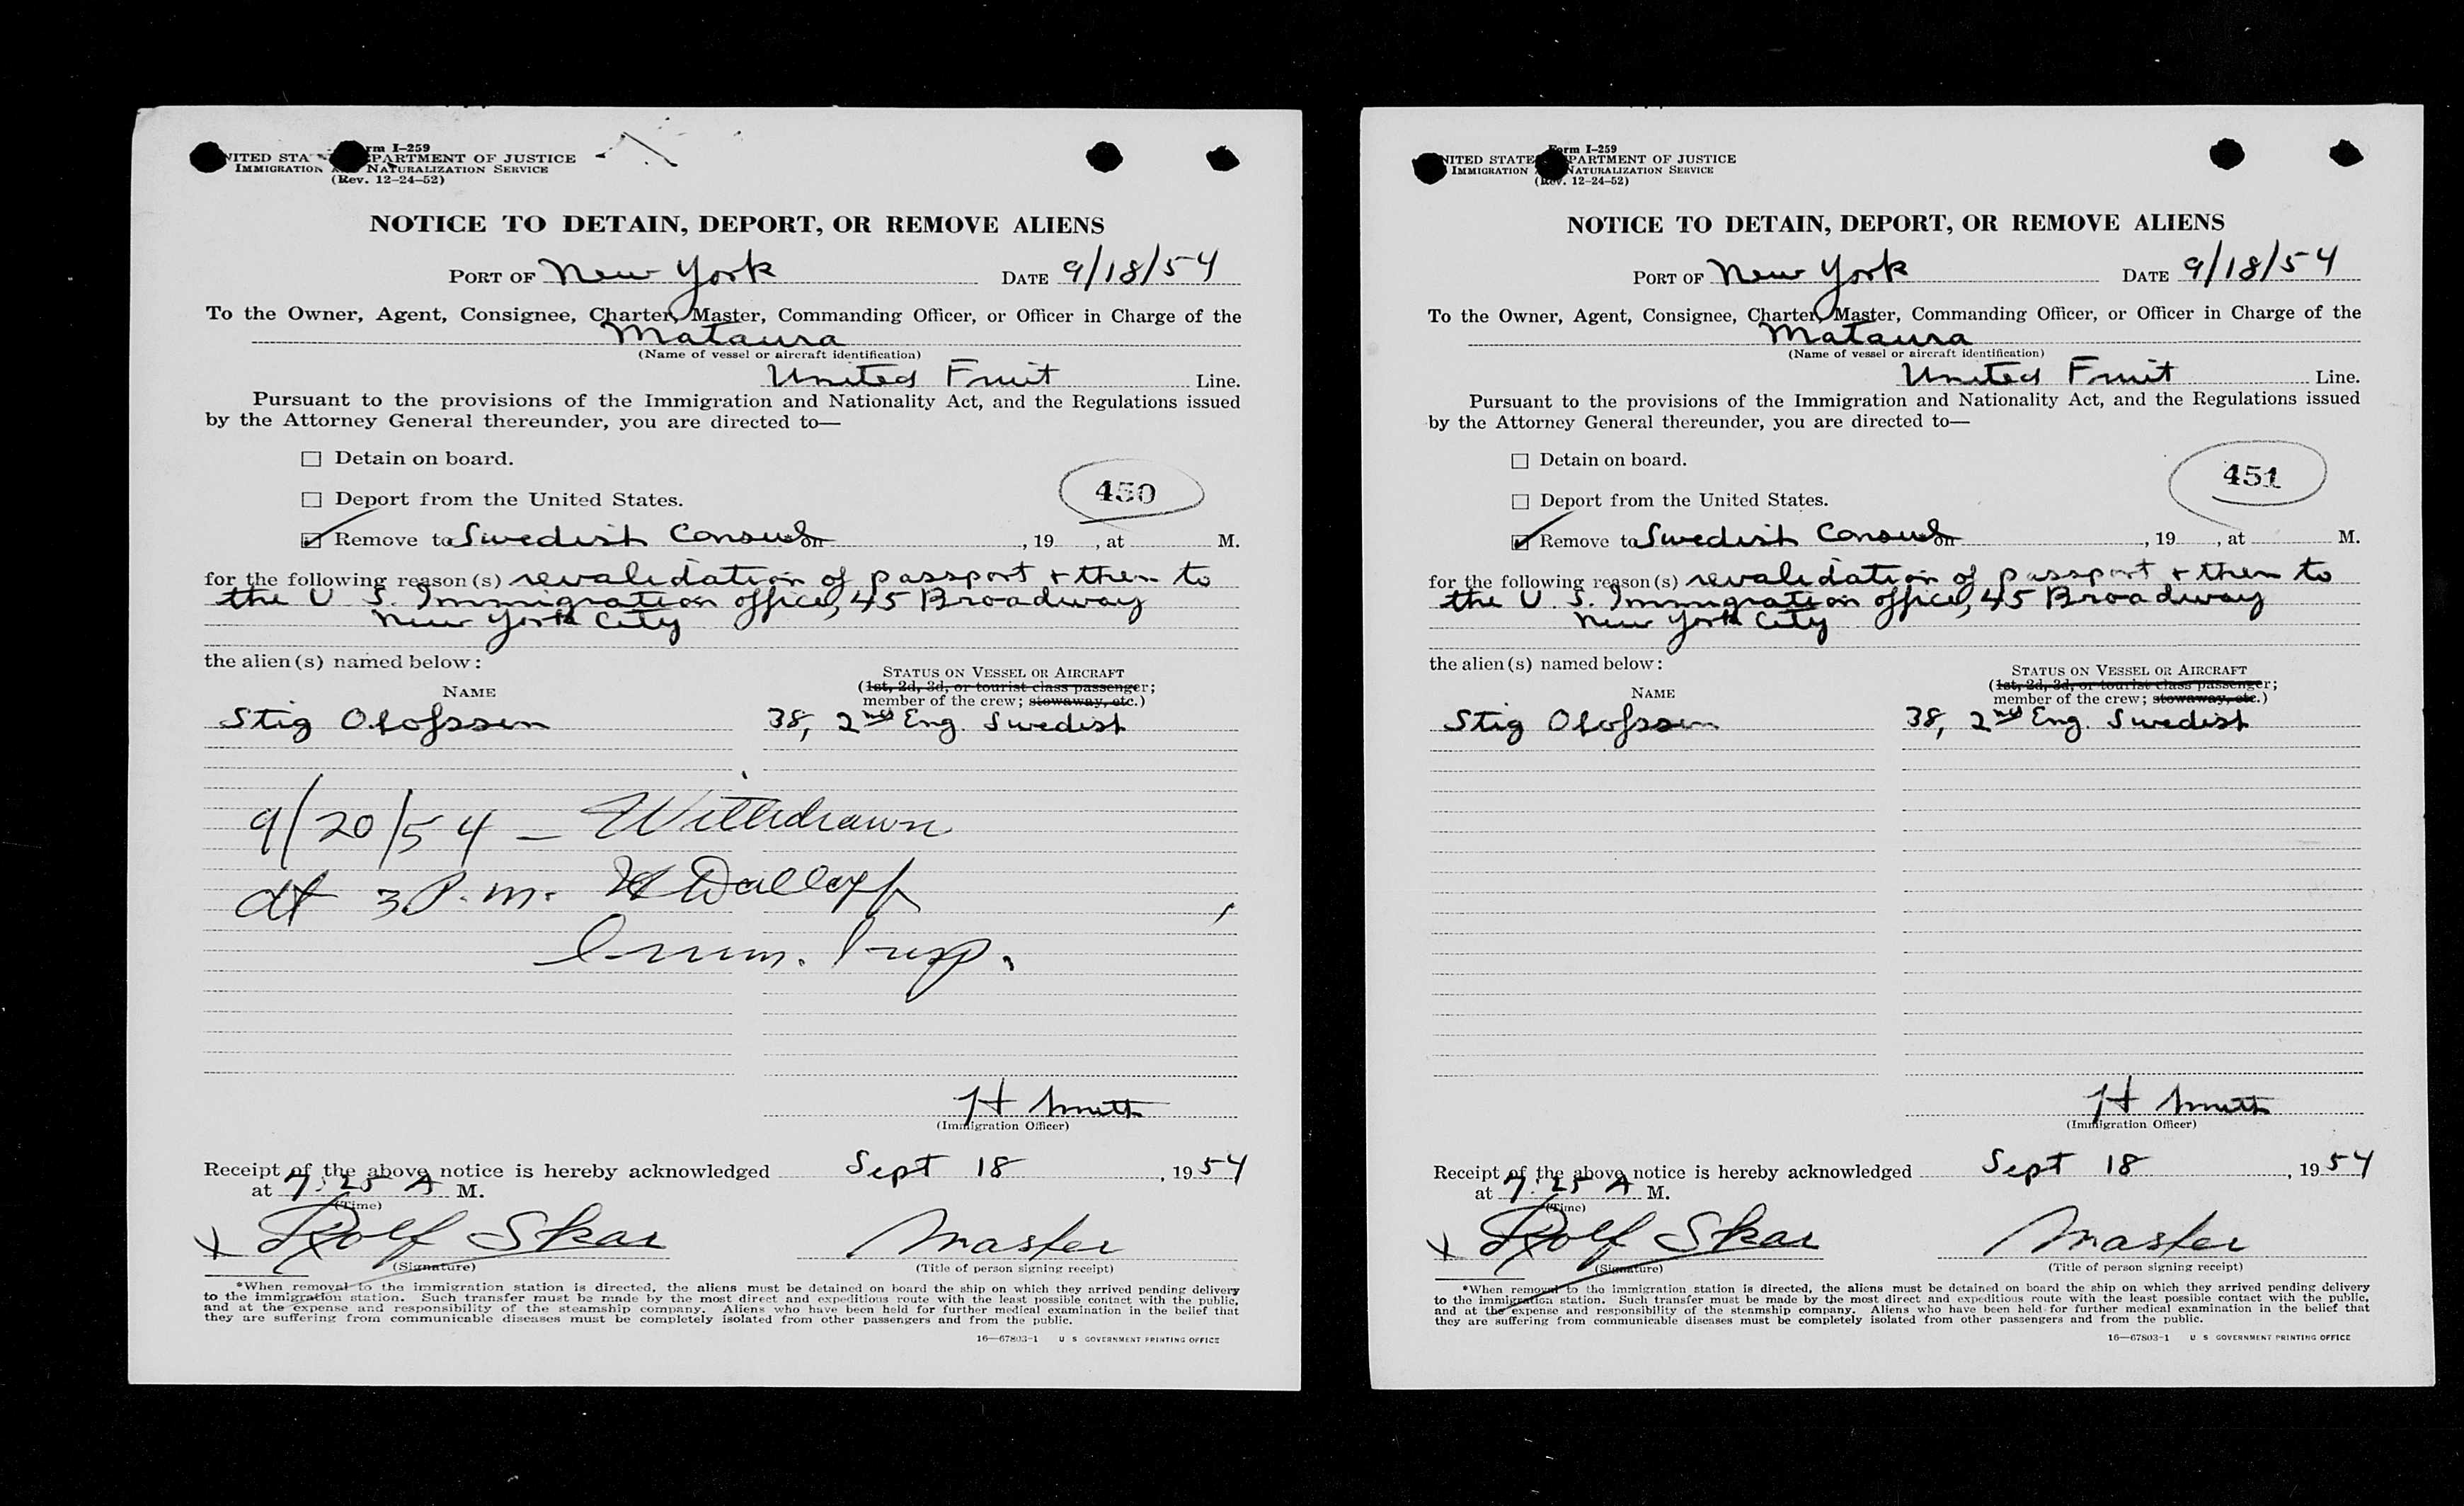 Form I-259
UNITED STATES DEPARTMENT OF JUSTICE
IMMIGRATION NATURALIZATION SERVICE
(Rev. 12-24-52)
NOTICE TO DETAIN, DEPORT, OR REMOVE ALIENS
PORT OF New York DATE 9/18/54
To the Owner, Agent, Consignee, Charter, Master, Commanding Officer, or Officer in Charge of the
Mataura
(Name of vessel or aircraft identification)
United Fruit Line.
Pursuant to the provisions of the Immigration and Nationality Act, and the Regulations issued
by the Attorney General thereunder, you are directed to—
☐ Detain on board.
450
☐ Deport from the United States.
☑ Remove to Swedish Consul on , 19 , at M.
for the following reason(s) revalidation of passport & then to
the U. S. Immigration office, 45 Broadway
New York City
the alien(s) named below:
STATUS ON VESSEL OR AIRCRAFT
(1st, 2d, 3d, or tourist class passenger;
NAME
member of the crew; stowaway, etc.)
Stig Olofsson 38, 2nd Eng. Swedish
9/20/54 — Withdrawn
at 3 P.m.
Imm. Insp.
H Smith
(Immigration Officer)
Receipt of the above notice is hereby acknowledged Sept 18, 1954
at 7:25 A M.
(Time)
X Rolf Skar Master
(Signature) (Title of person signing receipt)
*When removal to the immigration station is directed, the aliens must be detained on board the ship on which they arrived pending delivery
to the immigration station. Such transfer must be made by the most direct and expeditious route with the least possible contact with the public,
and at the expense and responsibility of the steamship company. Aliens who have been held for further medical examination in the belief that
they are suffering from communicable diseases must be completely isolated from other passengers and from the public.
16—67803-1 U S GOVERNMENT PRINTING OFFICE
Form I-259
UNITED STATES DEPARTMENT OF JUSTICE
IMMIGRATION NATURALIZATION SERVICE
(Rev. 12-24-52)
NOTICE TO DETAIN, DEPORT, OR REMOVE ALIENS
PORT OF New York DATE 9/18/54
To the Owner, Agent, Consignee, Charter, Master, Commanding Officer, or Officer in Charge of the
Mataura
(Name of vessel or aircraft identification)
United Fruit Line.
Pursuant to the provisions of the Immigration and Nationality Act, and the Regulations issued
by the Attorney General thereunder, you are directed to—
☐ Detain on board.
451
☐ Deport from the United States.
☑ Remove to Swedish Consul on , 19 , at M.
for the following reason(s) revalidation of passport & then to
the U. S. Immigration office, 45 Broadway
New York City
the alien(s) named below:
STATUS ON VESSEL OR AIRCRAFT
(1st, 2d, 3d, or tourist class passenger;
NAME
member of the crew; stowaway, etc.)
Stig Olofsson 38, 2nd Eng. Swedish
H Smith
(Immigration Officer)
Receipt of the above notice is hereby acknowledged Sept 18, 1954
at 7:25 A M.
(Time)
X Rolf Skar Master
(Signature) (Title of person signing receipt)
*When removal to the immigration station is directed, the aliens must be detained on board the ship on which they arrived pending delivery
to the immigration station. Such transfer must be made by the most direct and expeditious route with the least possible contact with the public,
and at the expense and responsibility of the steamship company. Aliens who have been held for further medical examination in the belief that
they are suffering from communicable diseases must be completely isolated from other passengers and from the public.
16—67803-1 U S GOVERNMENT PRINTING OFFICE